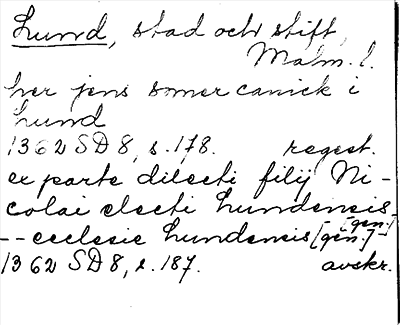 Lund, stad och stift,
Malm. l.
her jens somer canick i
lund
1362 SD 8, s. 178. regest.
ex parte dilecti filij Ni-
colai electi lundensis
[gen.]
-- ecclesie lundensis [gen.] -
1362 SD 8, s. 187. avskr.